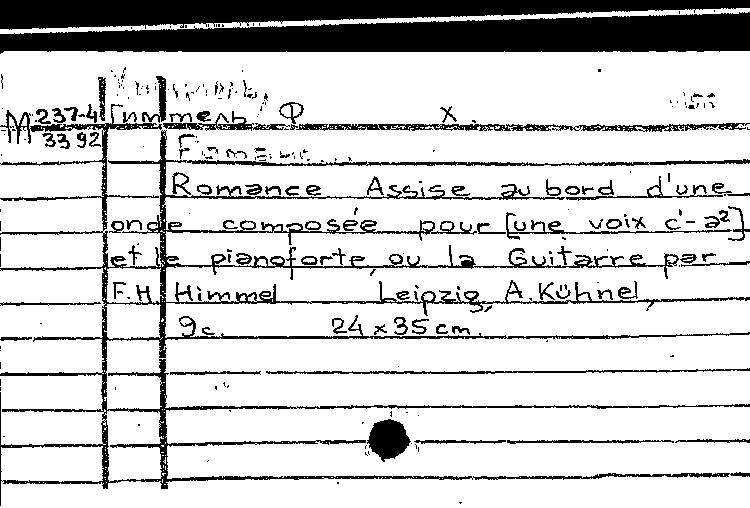 М 237-4 / 3392
Гиммель, Ф. Х.
Romance Assise au bord d'une
onde composée pour [une voix c'-a²]
et le pianoforte, ou la Guitarre par
F.H. Himmel Leipzig, A. Kühnel,
9 с. 24 x 35 cm.